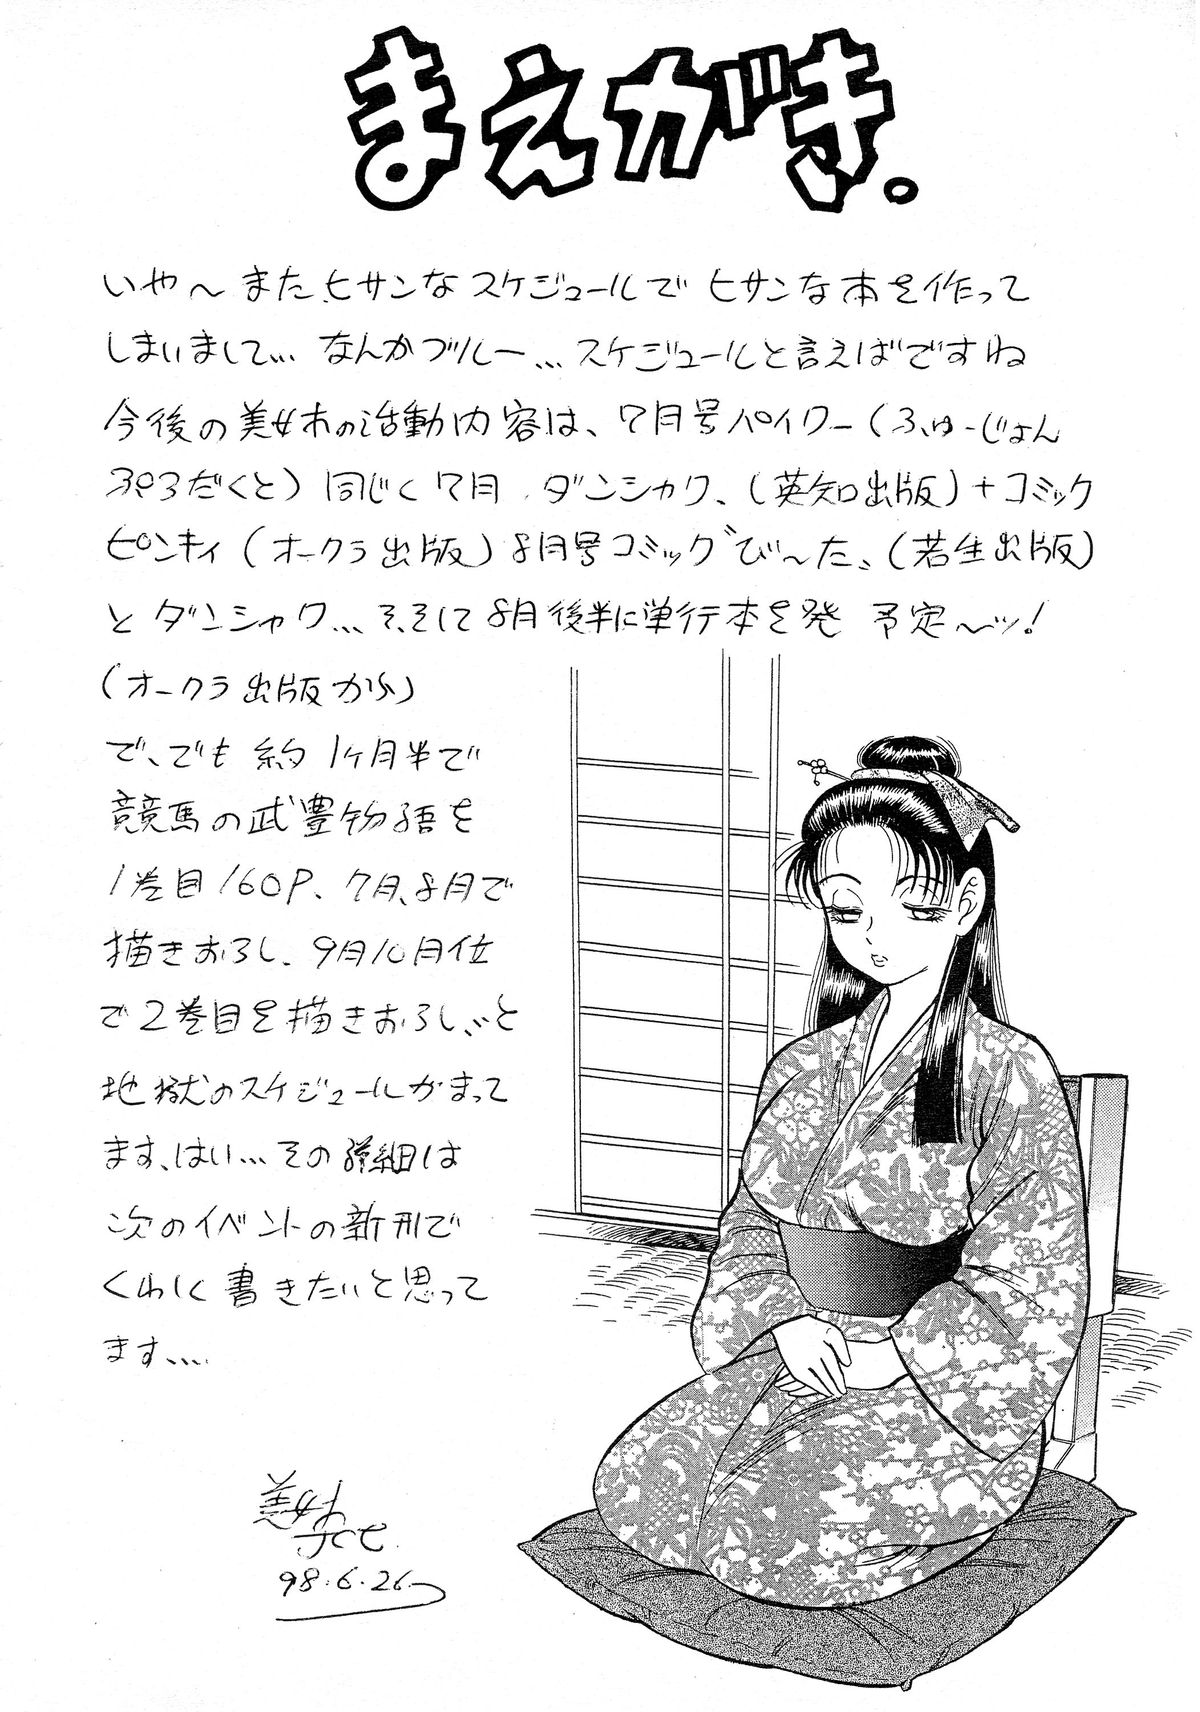 まえがき。
いや〜またヒサンなスケジュールでヒサンな本を作って
しまいまして… なんかブルー… スケジュールと言えばですね
今後の美女木の活動内容は、7月号パイワー(ふゅーじょん
ぷろだくと) 同じく7月 ダンシャク、(英知出版)+コミック
ピンキィ(オークラ出版) 8月号コミックび〜た、(若生出版)
とダンシャク… そ、そして8月後半に単行本を発 予定〜ッ!
(オークラ出版から)
で、でも 約1ヶ月半で
競馬の武豊物語を
1巻目160P、7月、8月で
描きおろし、9月10月位
で2巻目を描きおろし、と
地獄のスケジュールがまって
ます、はい… その詳細は
次のイベントの新刊で
くわしく書きたいと思って
ます…
美女木
98.6.26